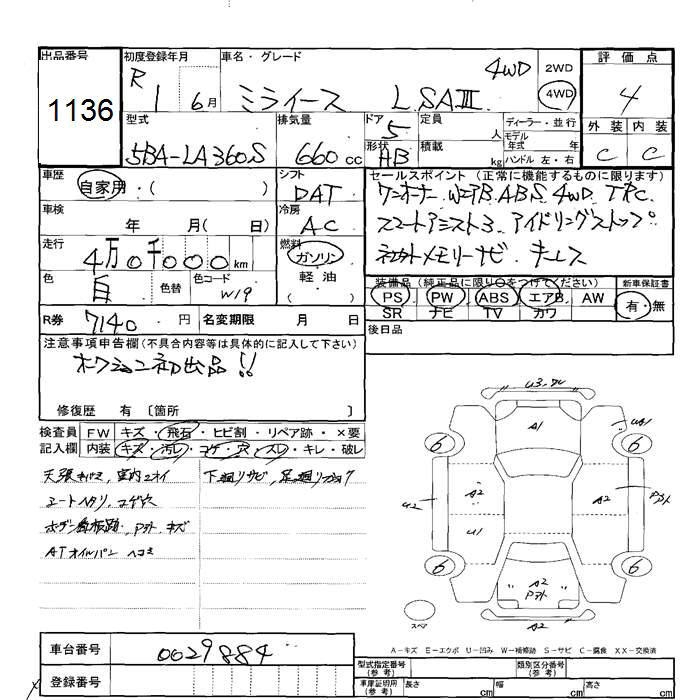 出品番号
1136
初度登録年月
R 1 6月
車名・グレード
ミライース L SAⅢ 4WD
2WD
4WD
評価点
4
型式
5BA-LA360S
排気量
660 cc
ドア
5
形状
HB
定員
人
積載
kg
ディーラー・並行
モデル
年式 年
ハンドル 左・右
外装 内装
C C
車歴
自家用・( )
シフト
DAT
車検
年 月( 日)
冷房
AC
走行
4万0千000km
燃料
ガソリン
軽油
( )
色
白
色替
色コード
W19
セールスポイント(正常に機能するものに限ります)
ワンオーナー.WエアB.ABS.4WD.TRC.
スマートアシスト3 アイドリングストップ
メモリーナビ キーレス
装備品(純正品に限り○をつけてください)
PS PW ABS エアB AW
SR ナビ TV カワ
新車保証書
有・無
R券 7140 円
名変期限 月 日
後日品
注意事項申告欄(不具合内容等は具体的に記入して下さい)
オークション初出品!!
修復歴 有〔箇所 〕
検査員 FW キズ・飛石・ヒビ割・リペア跡・×要
記入欄 内装 キズ・汚レ・コゲ・穴・スレ・キレ・破レ
天張キバミ,室内ニオイ
シートヘタリ,コゲ穴
Pヌケ.キズ
ATオイルパン ヘコミ
下廻リサビ,
U3
A1
UA1
6
6
U2
A2
A2
U1
6
6
A2
A2
スペア
A-キズ E-エクボ U-凹み W-補修跡 S-サビ C-腐食 XX-交換済
車台番号 0029884
登録番号
型式指定番号
(参考)
類別区分番号
(参考)
車庫証明用
(参考)
長さ cm 幅 cm 高さ cm